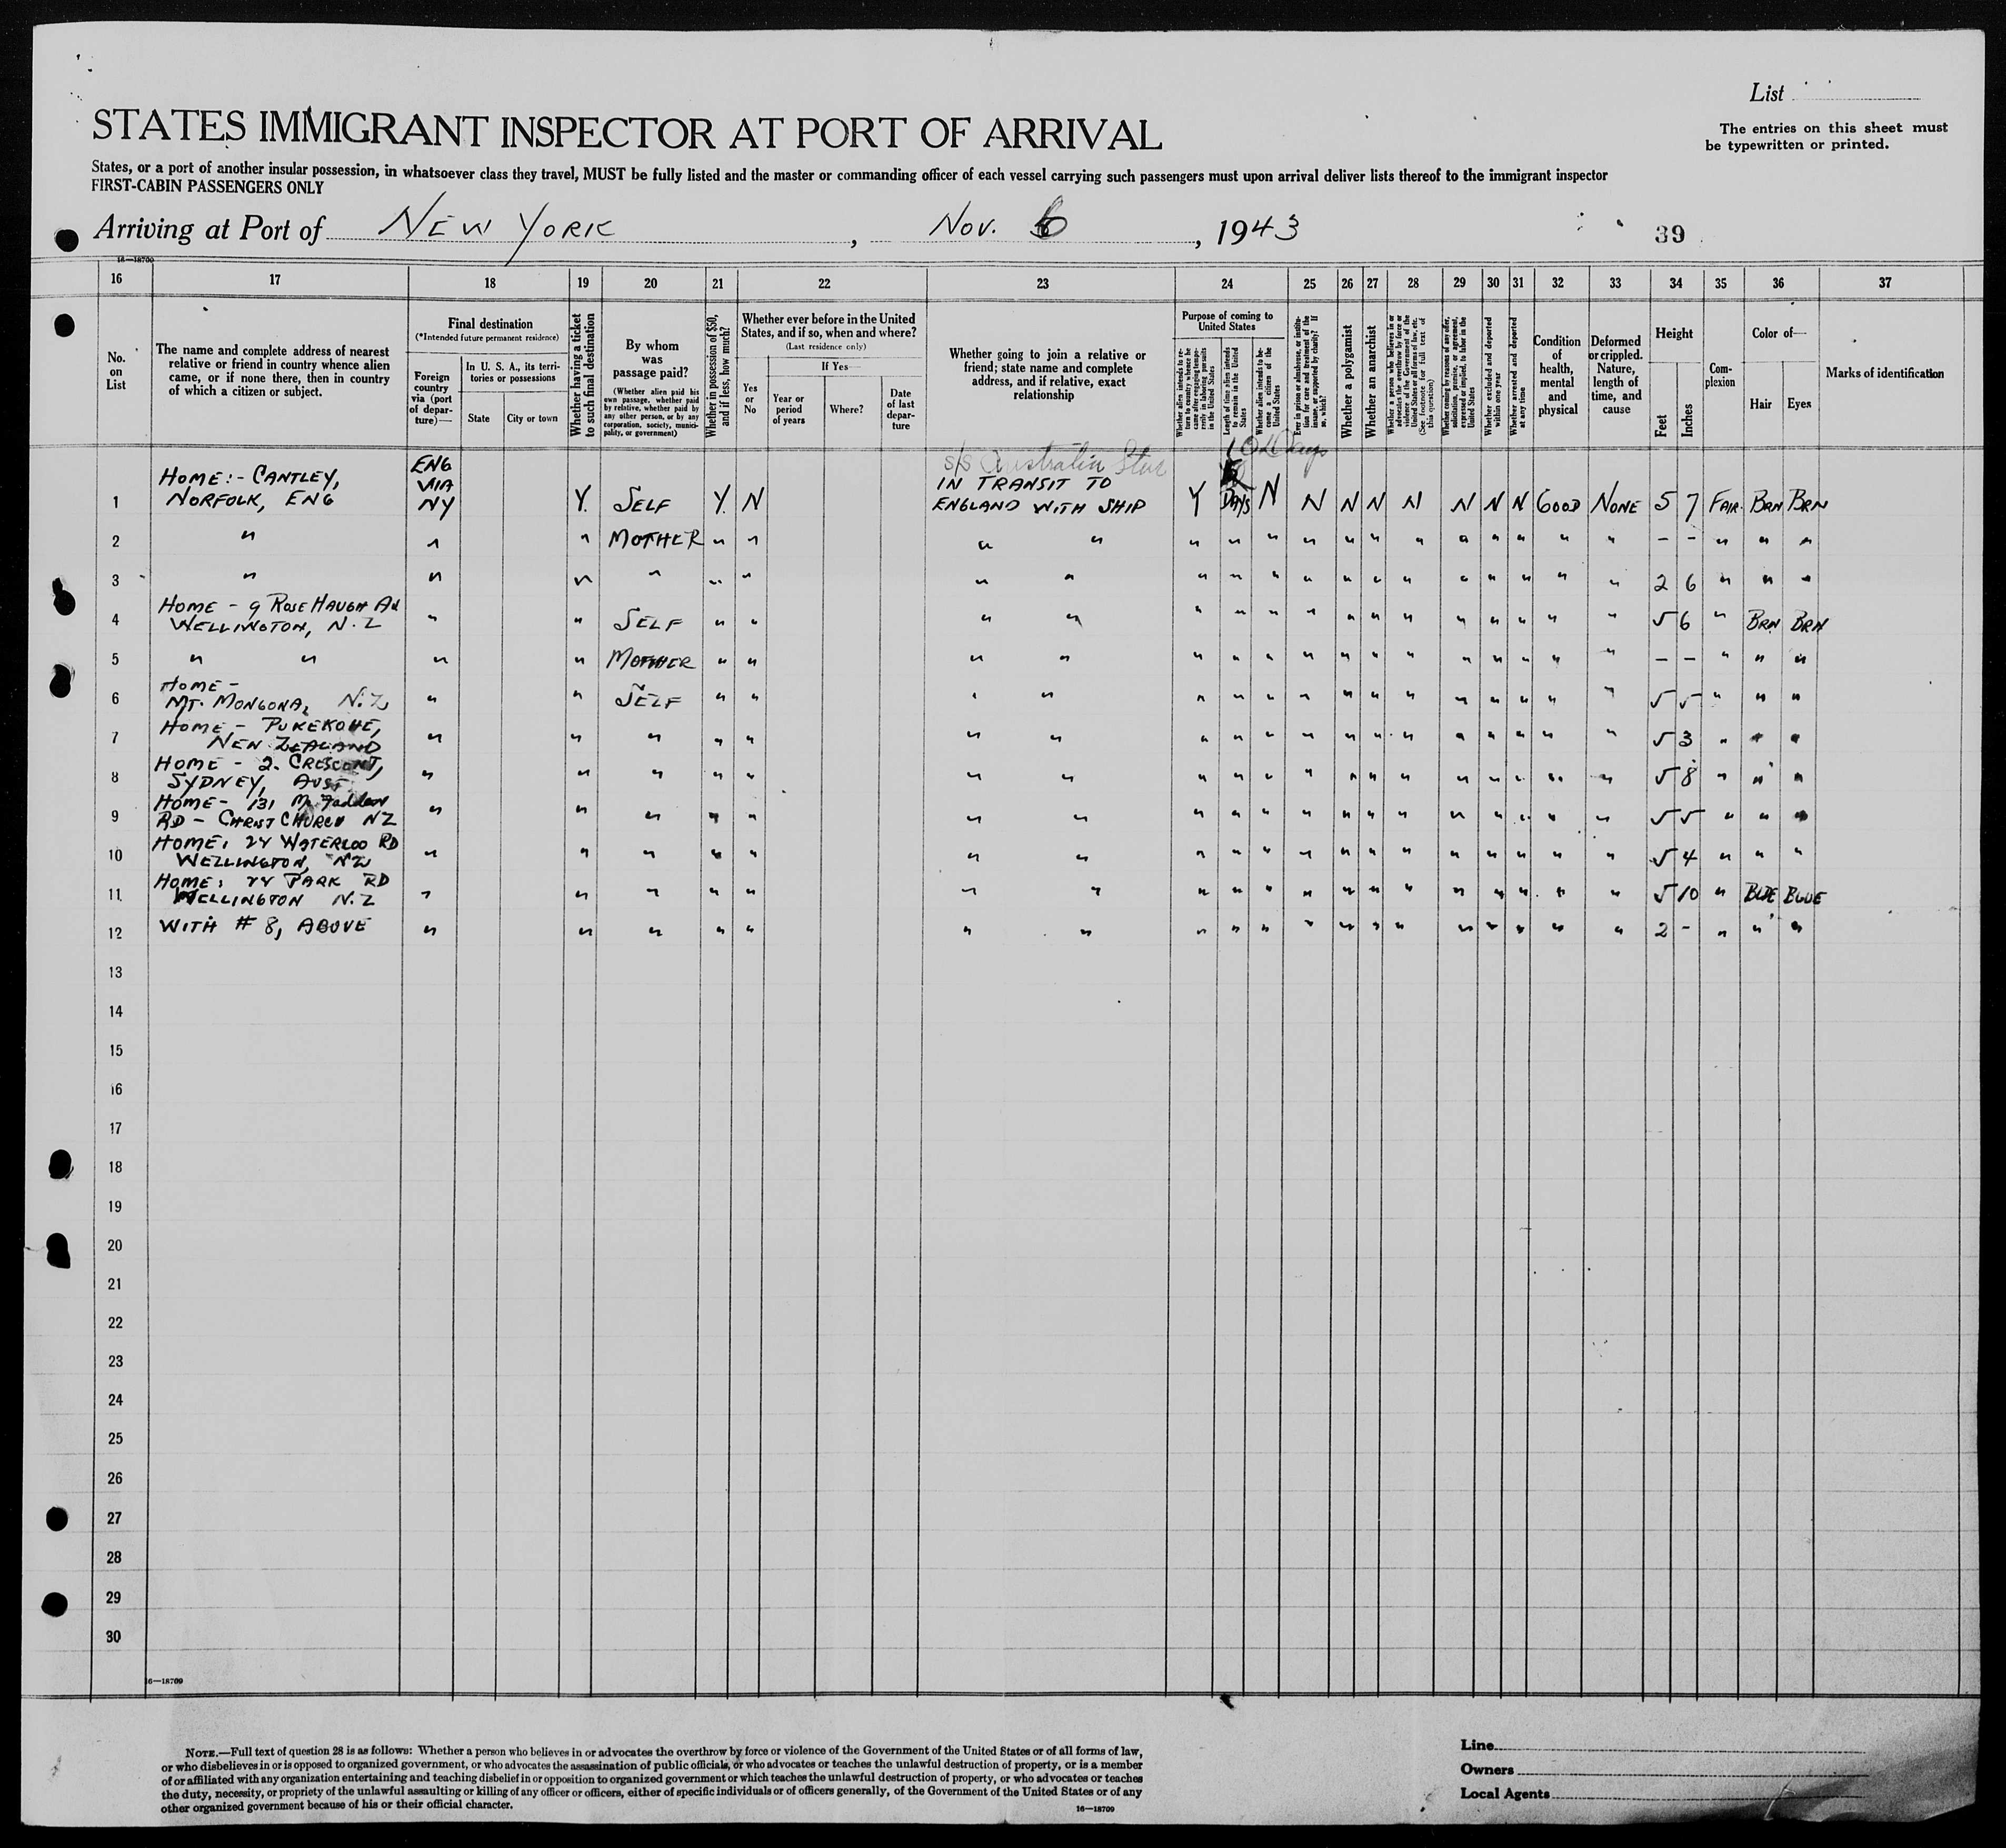 List
STATES IMMIGRANT INSPECTOR AT PORT OF ARRIVAL
The entries on this sheet must
be typewritten or printed.
States, or a port of another insular possession, in whatsoever class they travel, MUST be fully listed and the master or commanding officer of each vessel carrying such passengers must upon arrival deliver lists thereof to the immigrant inspector
FIRST-CABIN PASSENGERS ONLY
Arriving at Port of NEW YORK, NOV. 6, 1943
39
16—18709
16 17 18 19 20 21 22 23 24 25 26 27 28 29 30 31 32 33 34 35 36 37
No. on List
The name and complete address of nearest
relative or friend in country whence alien
came, or if none there, then in country
of which a citizen or subject.
Final destination
(*Intended future permanent residence)
Foreign country via (port of departure)—
In U. S. A., its territories or possessions
State
City or town
Whether having a ticket to such final destination
By whom was passage paid?
(Whether alien paid his own passage, whether paid by relative, whether paid by any other person, or by any corporation, society, municipality, or government)
Whether in possession of $50, and if less, how much?
Whether ever before in the United States, and if so, when and where?
(Last residence only)
Yes or No
If Yes—
Year or period of years
Where?
Date of last departure
Whether going to join a relative or
friend; state name and complete
address, and if relative, exact
relationship
Purpose of coming to United States
Whether alien intends to return to country whence he came after engaging temporarily in laboring pursuits in the United States
Length of time alien intends to remain in the United States
Whether alien intends to become a citizen of the United States
Ever in prison or almshouse, or institution for care and treatment of the insane, or supported by charity? If so, which?
Whether a polygamist
Whether an anarchist
Whether a person who believes in or advocates the overthrow by force or violence of the Government of the United States or all forms of law, etc. (See footnote for full text of this question)
Whether coming by reasons of any offer, solicitation, promise, or agreement, expressed or implied, to labor in the United States
Whether excluded and deported within one year
Whether arrested and deported at any time
Condition of health, mental and physical
Deformed or crippled. Nature, length of time, and cause
Height
Feet
Inches
Complexion
Color of—
Hair
Eyes
Marks of identification
10 Days
s/s Australia Star
1 HOME:- CANTLEY, NORFOLK, ENG ENG VIA NY Y. SELF Y. N IN TRANSIT TO ENGLAND WITH SHIP Y DAYS N N N N N N N N GOOD NONE 5 7 FAIR BRN BRN
2 " " " MOTHER " " " " " " " " " " " " " " " " - - " " "
3 " " " " " " " " " " " " " " " " " " " " 2 6 " " "
4 HOME - 9 ROSE HAUGH AV WELLINGTON, N.Z " " SELF " " " " " " " " " " " " " " " " 5 6 " BRN BRN
5 " " " " MOTHER " " " " " " " " " " " " " " " " - - " " "
6 HOME - MT. MONGONA, N.Z " " SELF " " " " " " " " " " " " " " " " 5 5 " " "
7 HOME - PUKEKOHE, NEW ZEALAND " " " " " " " " " " " " " " " " " " " 5 3 " " "
8 HOME - 2. CRESCENT, SYDNEY, AUST " " " " " " " " " " " " " " " " " " " 5 8 " " "
9 HOME - 131 RD - CHRISTCHURCH NZ " " " " " " " " " " " " " " " " " " " 5 5 " " "
10 HOME: 24 WATERLOO RD WELLINGTON, NZ " " " " " " " " " " " " " " " " " " " 5 4 " " "
11 HOME: 24 PARK RD WELLINGTON N.Z " " " " " " " " " " " " " " " " " " " 5 10 " BLUE BLUE
12 WITH # 8, ABOVE " " " " " " " " " " " " " " " " " " " 2 - " " "
13
14
15
16
17
18
19
20
21
22
23
24
25
26
27
28
29
30
16—18709
NOTE.—Full text of question 28 is as follows: Whether a person who believes in or advocates the overthrow by force or violence of the Government of the United States or of all forms of law,
or who disbelieves in or is opposed to organized government, or who advocates the assassination of public officials, or who advocates or teaches the unlawful destruction of property, or is a member
of or affiliated with any organization entertaining and teaching disbelief in or opposition to organized government or which teaches the unlawful destruction of property, or who advocates or teaches
the duty, necessity, or propriety of the unlawful assaulting or killing of any officer or officers, either of specific individuals or of officers generally, of the Government of the United States or of any
other organized government because of his or their official character.
16—18709
Line
Owners
Local Agents